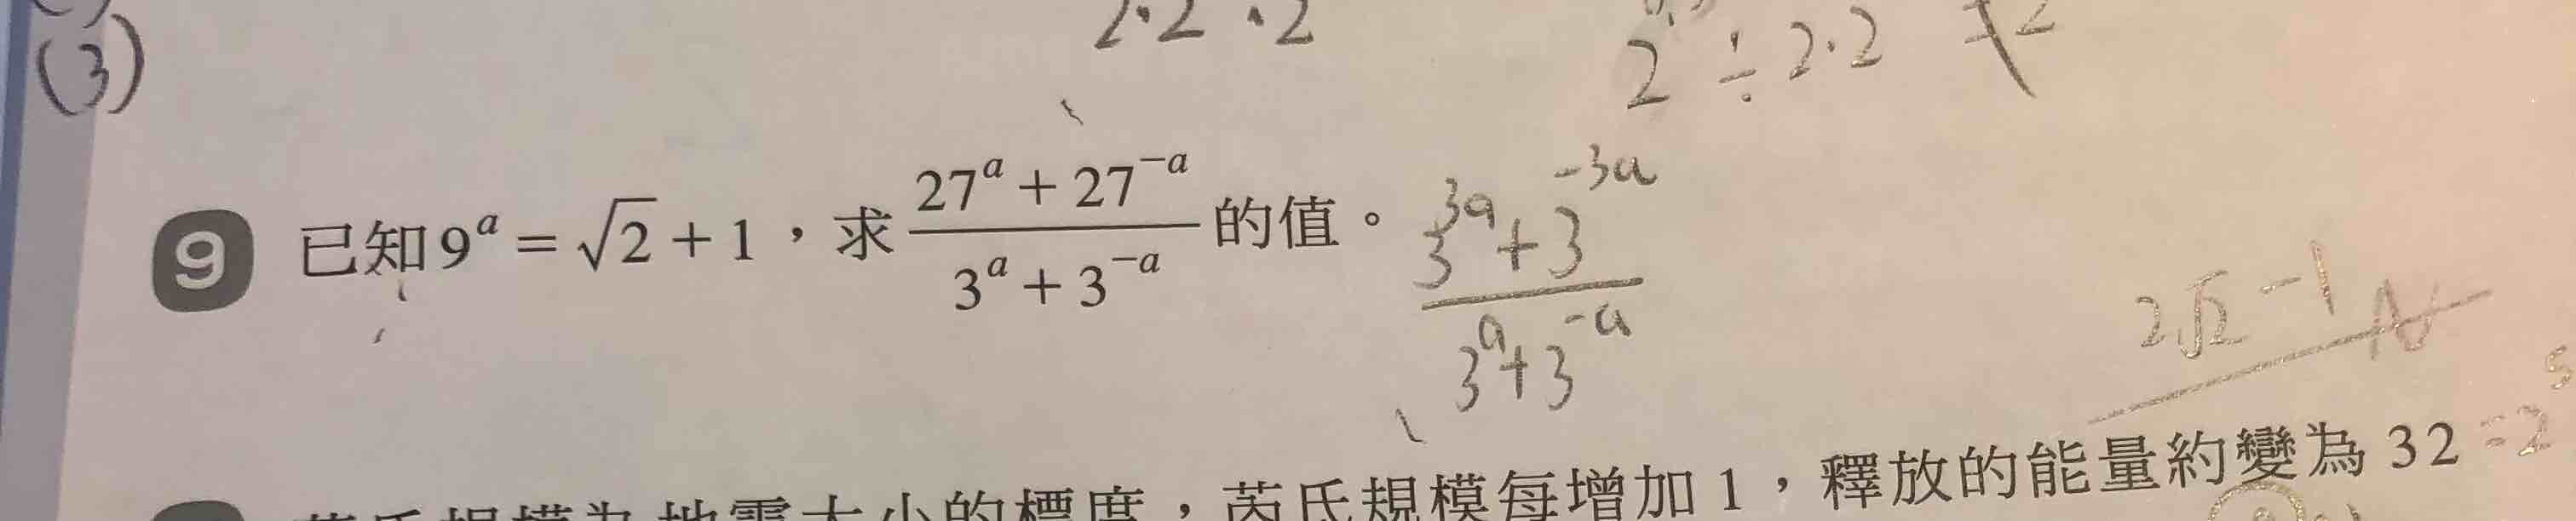 (3)
2·2·2
2 ÷ 2·2
9 已知 9^a = √2 + 1，求 (27^a + 27^{-a})/(3^a + 3^{-a}) 的值。
(3^{3a} + 3^{-3a})/(3^a + 3^{-a})
2√2 - 1
芮氏規模為地震大小的標度，芮氏規模每增加 1，釋放的能量約變為 32 = 2^5